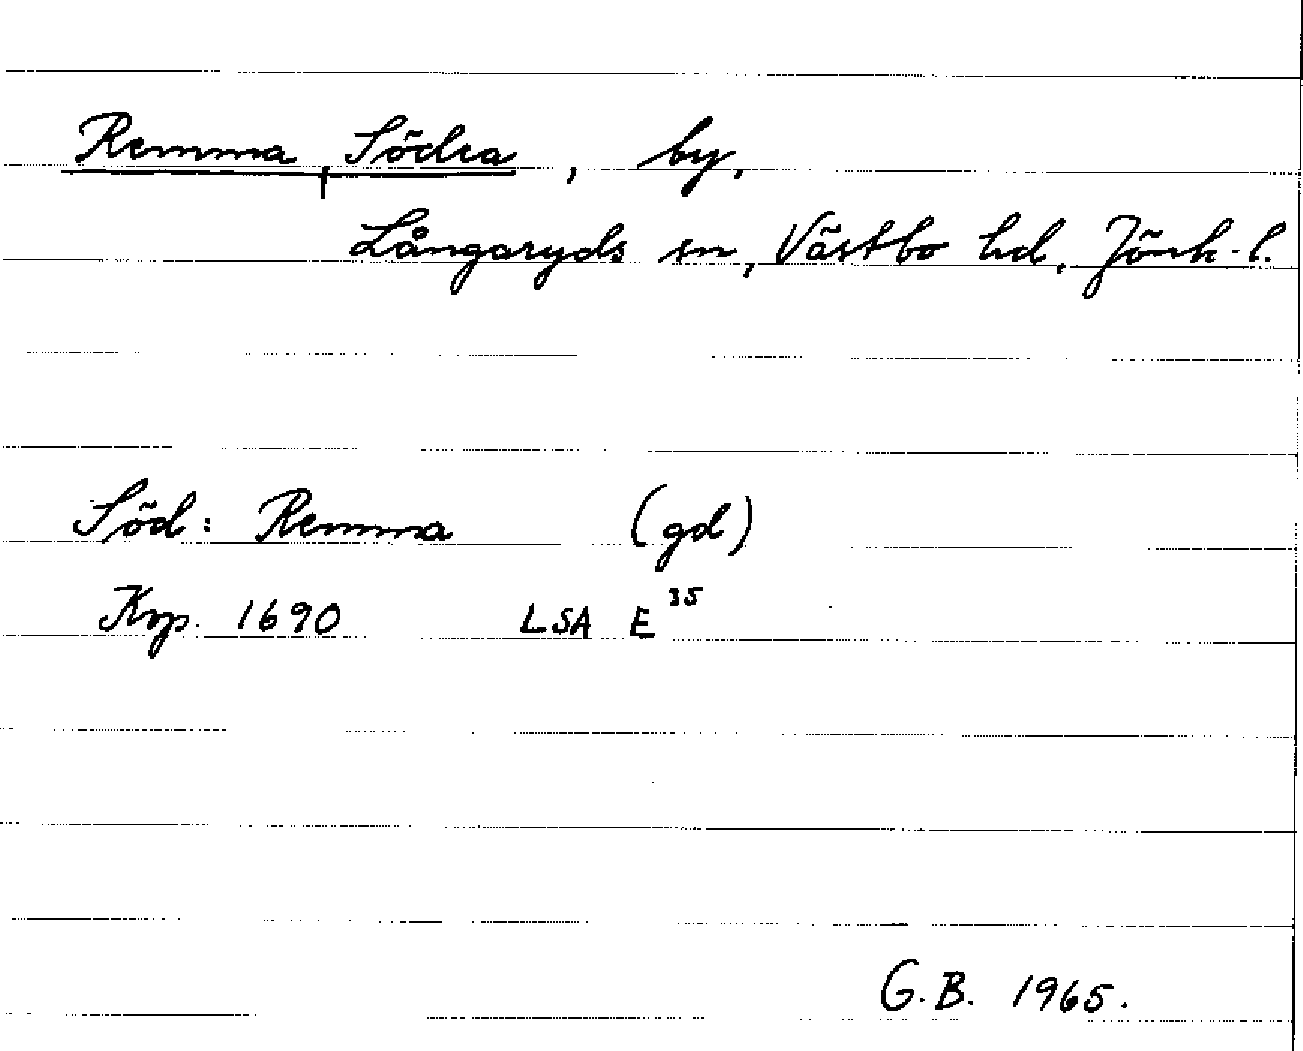 Remma, Södra, by,
Långaryds sn, Västbo hd. Jönk. l.
Söd: Remma (gd)
Krp. 1690 LSA E 35
G.B. 1965.